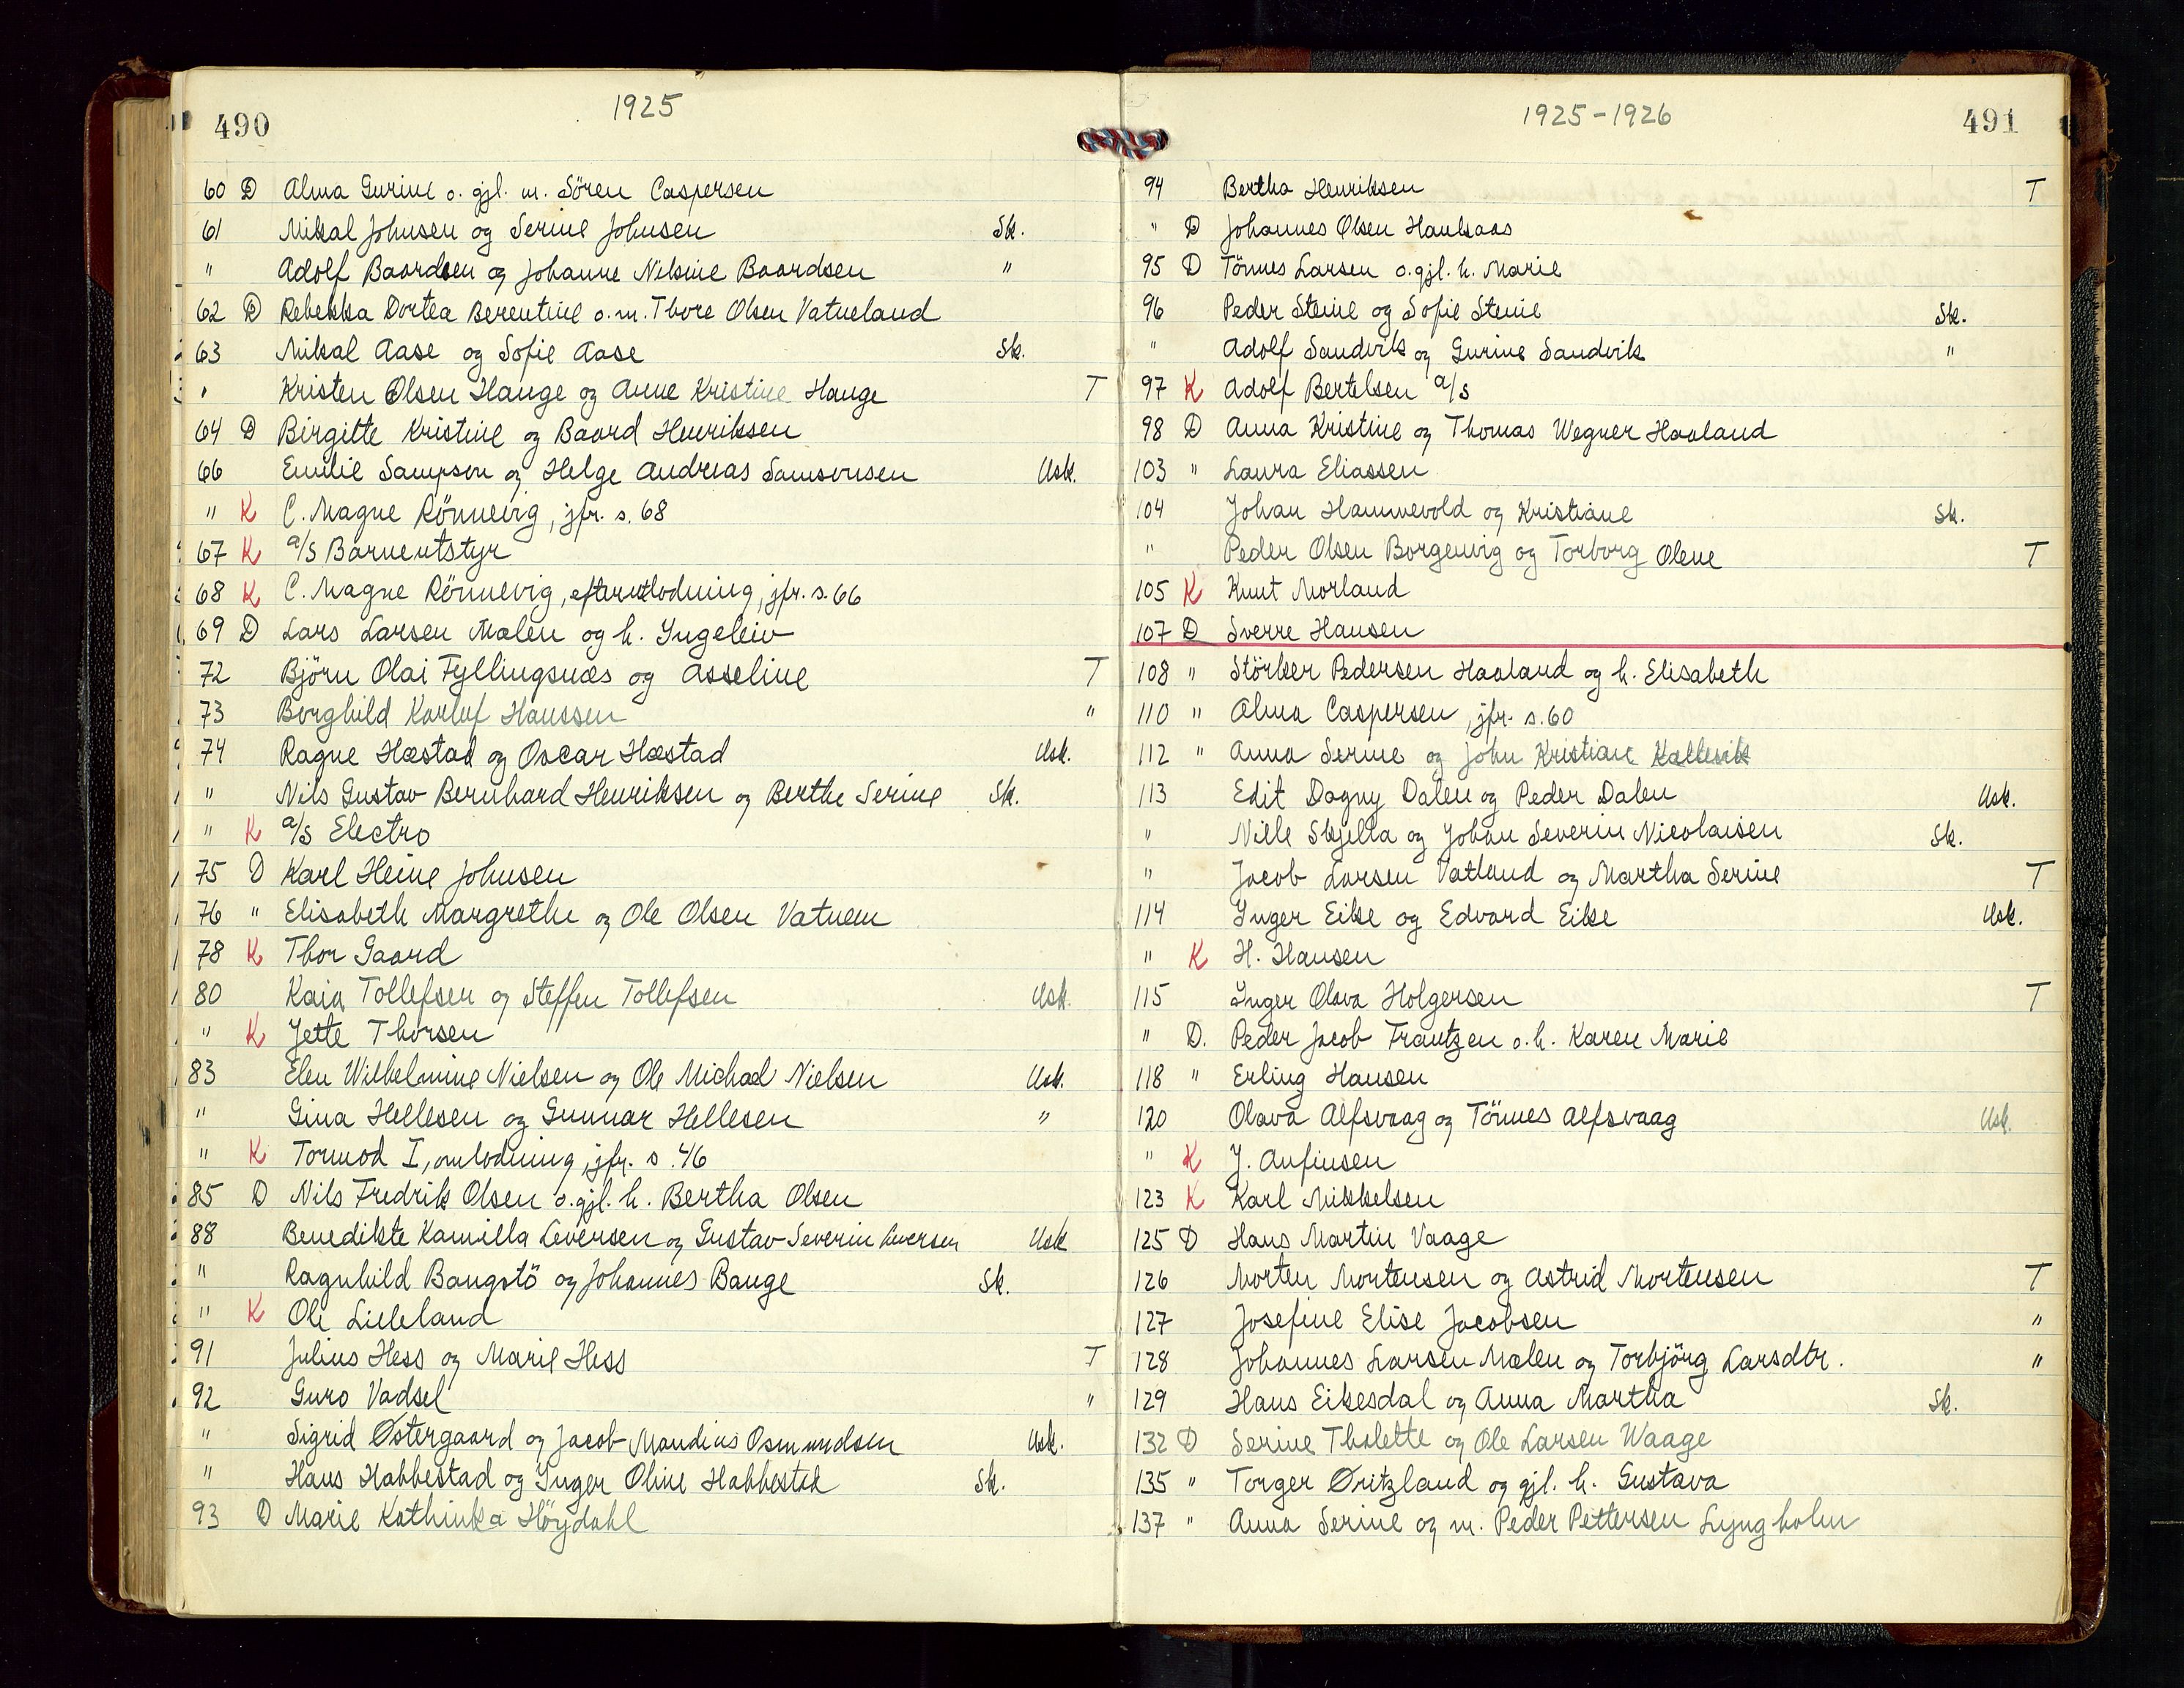 490
1925
60 D Alma Gurine o. gjl. m. Sören Caspersen
61 Mikal Johnsen og Serine Johnsen Sk.
" Adolf Baardsen og Johanne Nilsine Baardsen "
62 D Rebekka Dortea Berentine o. m. Thore Olsen Vatneland
63 Mikal Aase og Sofie Aase Sk.
" Kristen Olsen Hauge og Anne Kristine Hauge T
64 D Birgitte Kristine og Baard Henriksen
66 Emilie Sampson og Helge Andreas Samsonsen Usk.
" K C. Magne Rönnevig, jfr. s. 68
67 K a/s Barneutstyr
68 K C. Magne Rönnevig, efterutlodning, jfr. s. 66
69 D Lars Larsen Mælen og h. Ingeleiv
72 Björn Olai Fyllingsnæs og Asseline T
73 Borghild Karluf Hanssen "
74 Ragne Hæstad og Oscar Hæstad Usk.
" Nils Gustav Bernhard Henriksen og Berthe Serine Sk.
" K a/s Electro
75 D Karl Heine Johnsen
76 " Elisabeth Margrethe og Ole Olsen Vatnem
78 K Thor Gaard
80 Kaia Tollefsen og Steffen Tollefsen Usk.
" K Jette Thorsen
83 Elen Wilhelmine Nielsen og Ole Michael Nielsen Usk.
" Gina Hellesen og Gunnar Hellesen "
" K Tormod I, omlodning, jfr. s. 46
85 D Nils Fredrik Olsen o. gjl. h. Bertha Olsen
88 Benedikte Kamilla Leversen og Gustav Severin Leversen Usk
" Ragnhild Bangstö og Johannes Bauge Sk.
" K Ole Lilleland
91 Julius Hess og Marie Hess T
92 Guro Vadsel "
" Sigrid Østergaard og Jacob Mandius Osmundsen Usk.
" Hans Habbestad og Inger Oline Habbestad Sk.
93 D Marie Kathinka Höydahl
1925-1926
491
94 Bertha Henriksen T
" D Johannes Olsen Haukaas
95 D Tönnes Larsen o. gjl. h. Marie
96 Peder Steine og Sofie Steine Sk.
" Adolf Sandvik og Gurine Sandvik "
97 K Adolf Bertelsen a/s
98 D Anna Kristine og Thomas Wegner Haaland
103 " Laura Eliassen
104 Johan Hammevold og Kristiane Sk.
" Peder Olsen Borgenvig og Torborg Olene T
105 K Knut Morland
107 D Sverre Hansen
108 " Störker Pedersen Haaland og h. Elisabeth
110 " Alma Caspersen, jfr. s. 60
112 " Anna Serine og John Kristian Kallevik
113 Edit Dagny Dalen og Peder Dalen Usk.
" Nille Skjella og Johan Severin Nicolaisen Sk.
" Jacob Larsen Vatland og Martha Serine T
114 Inger Eike og Edvard Eike Usk.
" K H. Hansen
115 Inger Olava Holgersen T
" D. Peder Jacob Frantzen o. h. Karen Marie
118 " Erling Hansen
120 Olava Alfsvaag og Tönnes Alfsvaag Usk.
" K J. Anfinsen
123 K Karl Mikkelsen
125 D Hans Martin Vaage
126 Morten Mortensen og Astrid Mortensen T
127 Josefine Elise Jacobsen "
128 Johannes Larsen Mælen og Torbjörg Larsdtr. "
129 Hans Eikesdal og Anna Martha Sk.
132 D Serine Tholette og Ole Larsen Waage
135 " Torger Øritzland og gjl. h. Gustava
137 " Anna Serine og m. Peder Pettersen Lyngholm